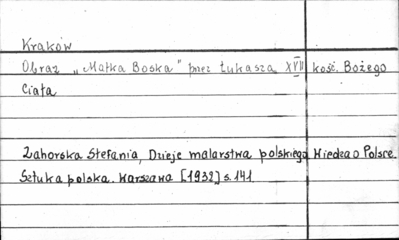 Kraków
Obraz "Matka Boska" przez Łukasza XVII kość. Bożego
Ciała
Zahorska Stefania, Dzieje malarstwa polskiego Wiedza o Polsce.
Sztuka polska. Warszawa [1932] s. 141